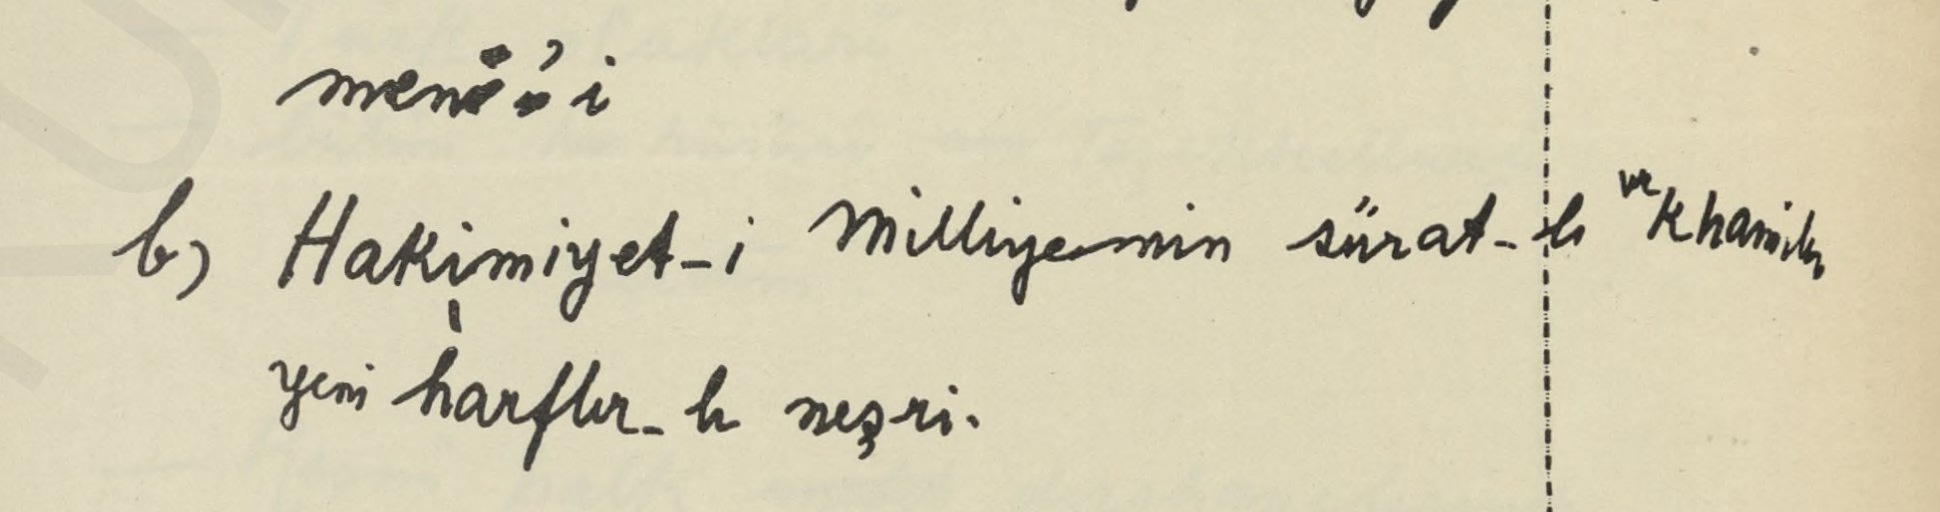 b) Hakimiyet-i Milliyenin sürat-le ve
yeni harfler-le neşri.